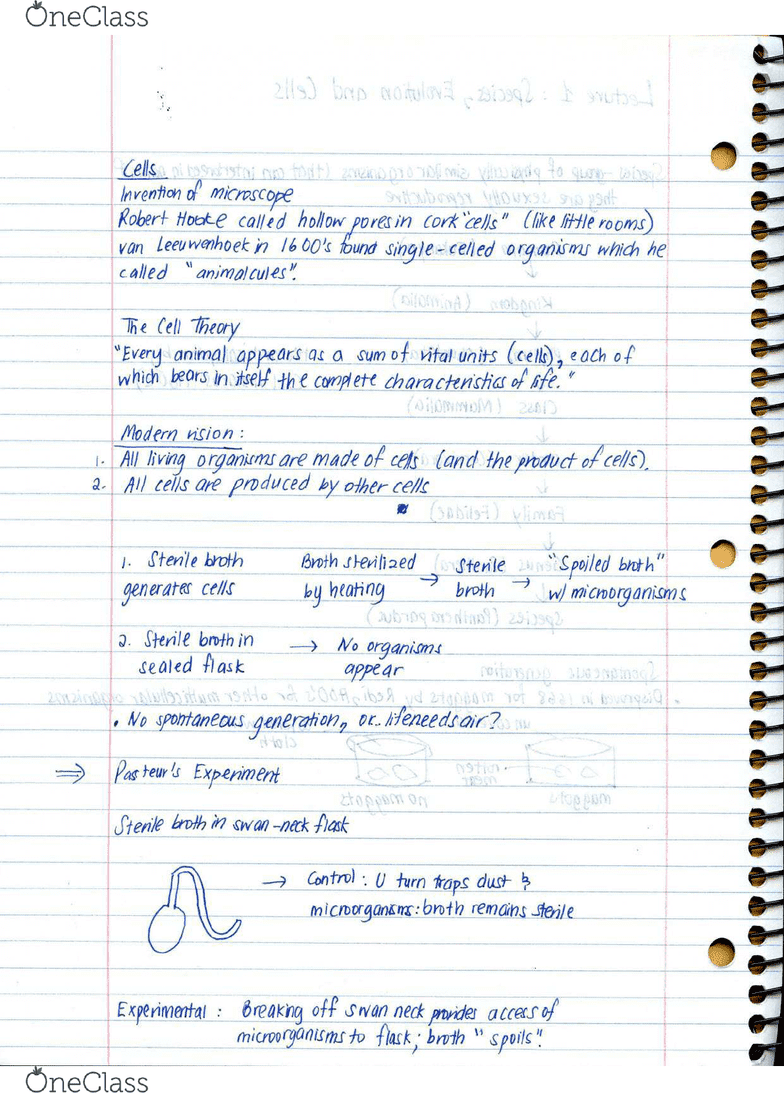 OneClass
Cells
Invention of microscope
Robert Hooke called hollow pores in cork "cells" (like little rooms)
van Leeuwenhoek in 1600's found single-celled organisms which he
called "animalcules".
The Cell Theory
"Every animal appears as a sum of vital units (cells), each of
which bears in itself the complete characteristics of life."
Modern vision:
1. All living organisms are made of cells (and the product of cells).
2. All cells are produced by other cells
1. Sterile broth generates cells
Broth sterilized by heating → Sterile broth → "Spoiled broth" w/ microorganisms
2. Sterile broth in sealed flask → No organisms appear
. No spontaneous generation, or life needs air?
⇒ Pasteur's Experiment
Sterile broth in swan-neck flask
→ Control: U turn traps dust &
microorganisms: broth remains sterile
Experimental: Breaking off swan neck provides access of
microorganisms to flask; broth "spoils".
OneClass